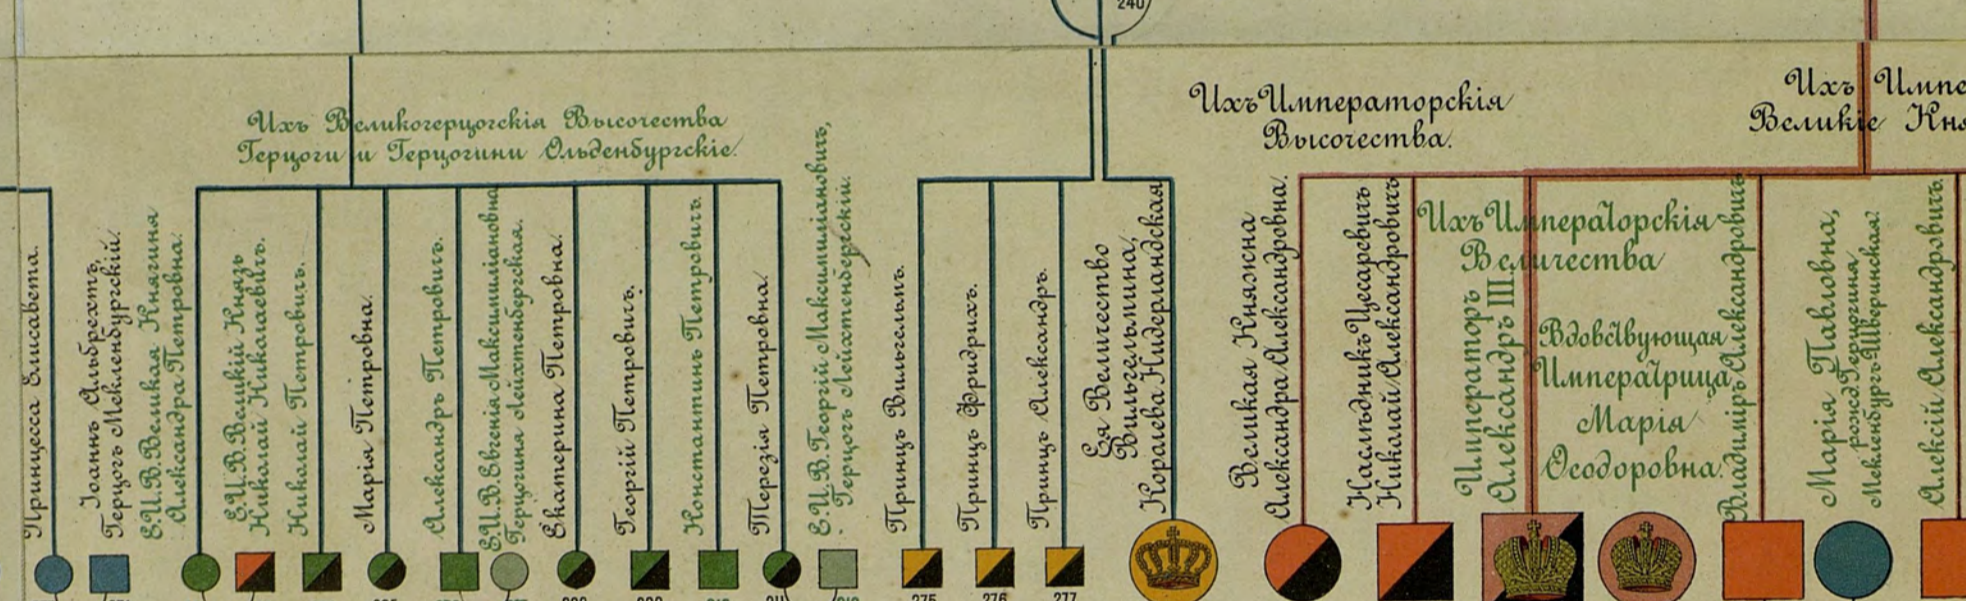 240
Ихъ Великогерцогскія Высочества
Герцоги и Герцогини Ольденбургскіе.
Ихъ Императорскія
Высочества.
Ихъ
Великіе
Принцесса Елисавета.
Іоаннъ Альбрехтъ,
Герцогъ Мекленбургскій.
Е.И.В. Великая Княгиня
Александра Петровна.
Е.И.В. Великій Князь
Николай Николаевичъ.
Николай Петровичъ.
Марія Петровна.
Александръ Петровичъ.
Е.И.В. Евгенія Максимиліановна
Герцогиня Лейхтенбергская.
Екатерина Петровна.
Георгій Петровичъ.
Константинъ Петровичъ.
Терезія Петровна.
Е.И.В. Георгій Максимиліановичъ,
Герцогъ Лейхтенбергскій.
Принцъ Вильгельмъ.
Принцъ Фридрихъ.
Принцъ Александръ.
Ея Величество
Вильгельмина,
Королева Нидерландская
Великая Княжна
Александра Александровна.
Наслѣдникъ Цесаревичъ
Николай Александровичъ
Ихъ Императорскія
Величества
Императоръ
Александръ III.
Вдовствующая
Императрица
Марія
Ѳеодоровна.
Владиміръ Александровичъ
Марія Павловна,
рожд. Герцогиня
Мекленбургъ-Шверинская.
Алексій Александровичъ.
275
276
277